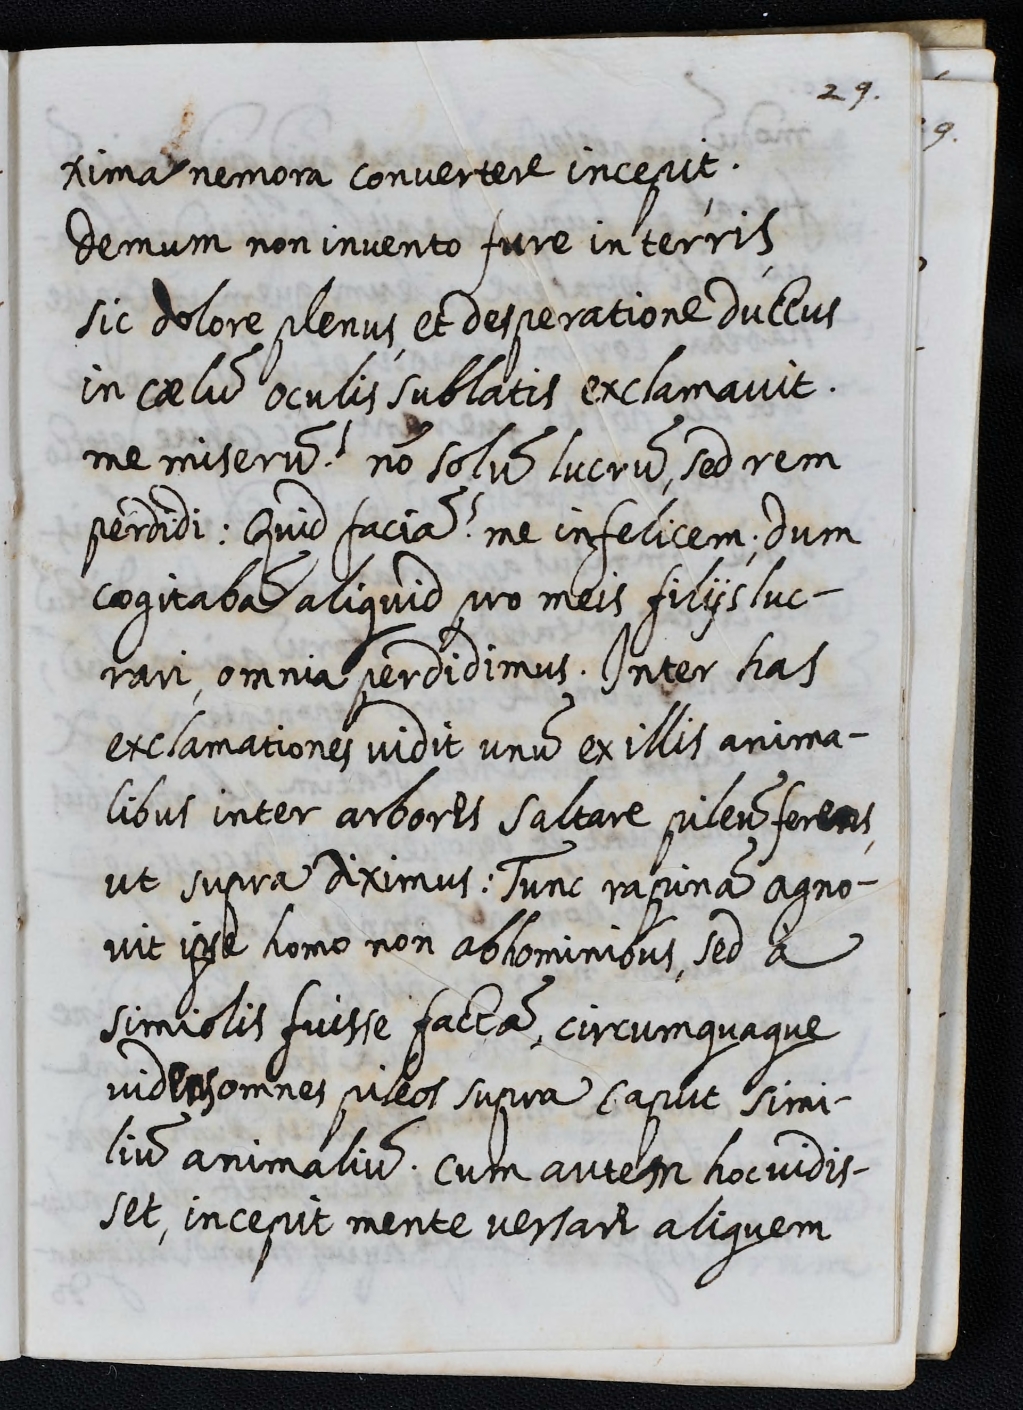 29.
xima nemora convertere incepit.
Demum non invento fure in terris
sic dolore plenus, et desperatione ductus
in cœlū oculis sublatis exclamavit.
me miserū! nō solū lucrū, sed rem
perdidi: Quid faciā! me infelicem; dum
cogitabā aliquid pro meis filijs luc-
rari, omnia perdidimus. Inter has
exclamationes vidit unū ex illis anima-
libus inter arbores saltare pileū ferens,
ut supra diximus: Tunc rapinā agno-
vit ipse homo non ab hominibus, sed à
simiolis fuisse factā, circumquaque
videns omnes pileos supra caput simi-
liū animaliū. Cum autem hoc vidis-
set, incepit mente versari aliquem
9.